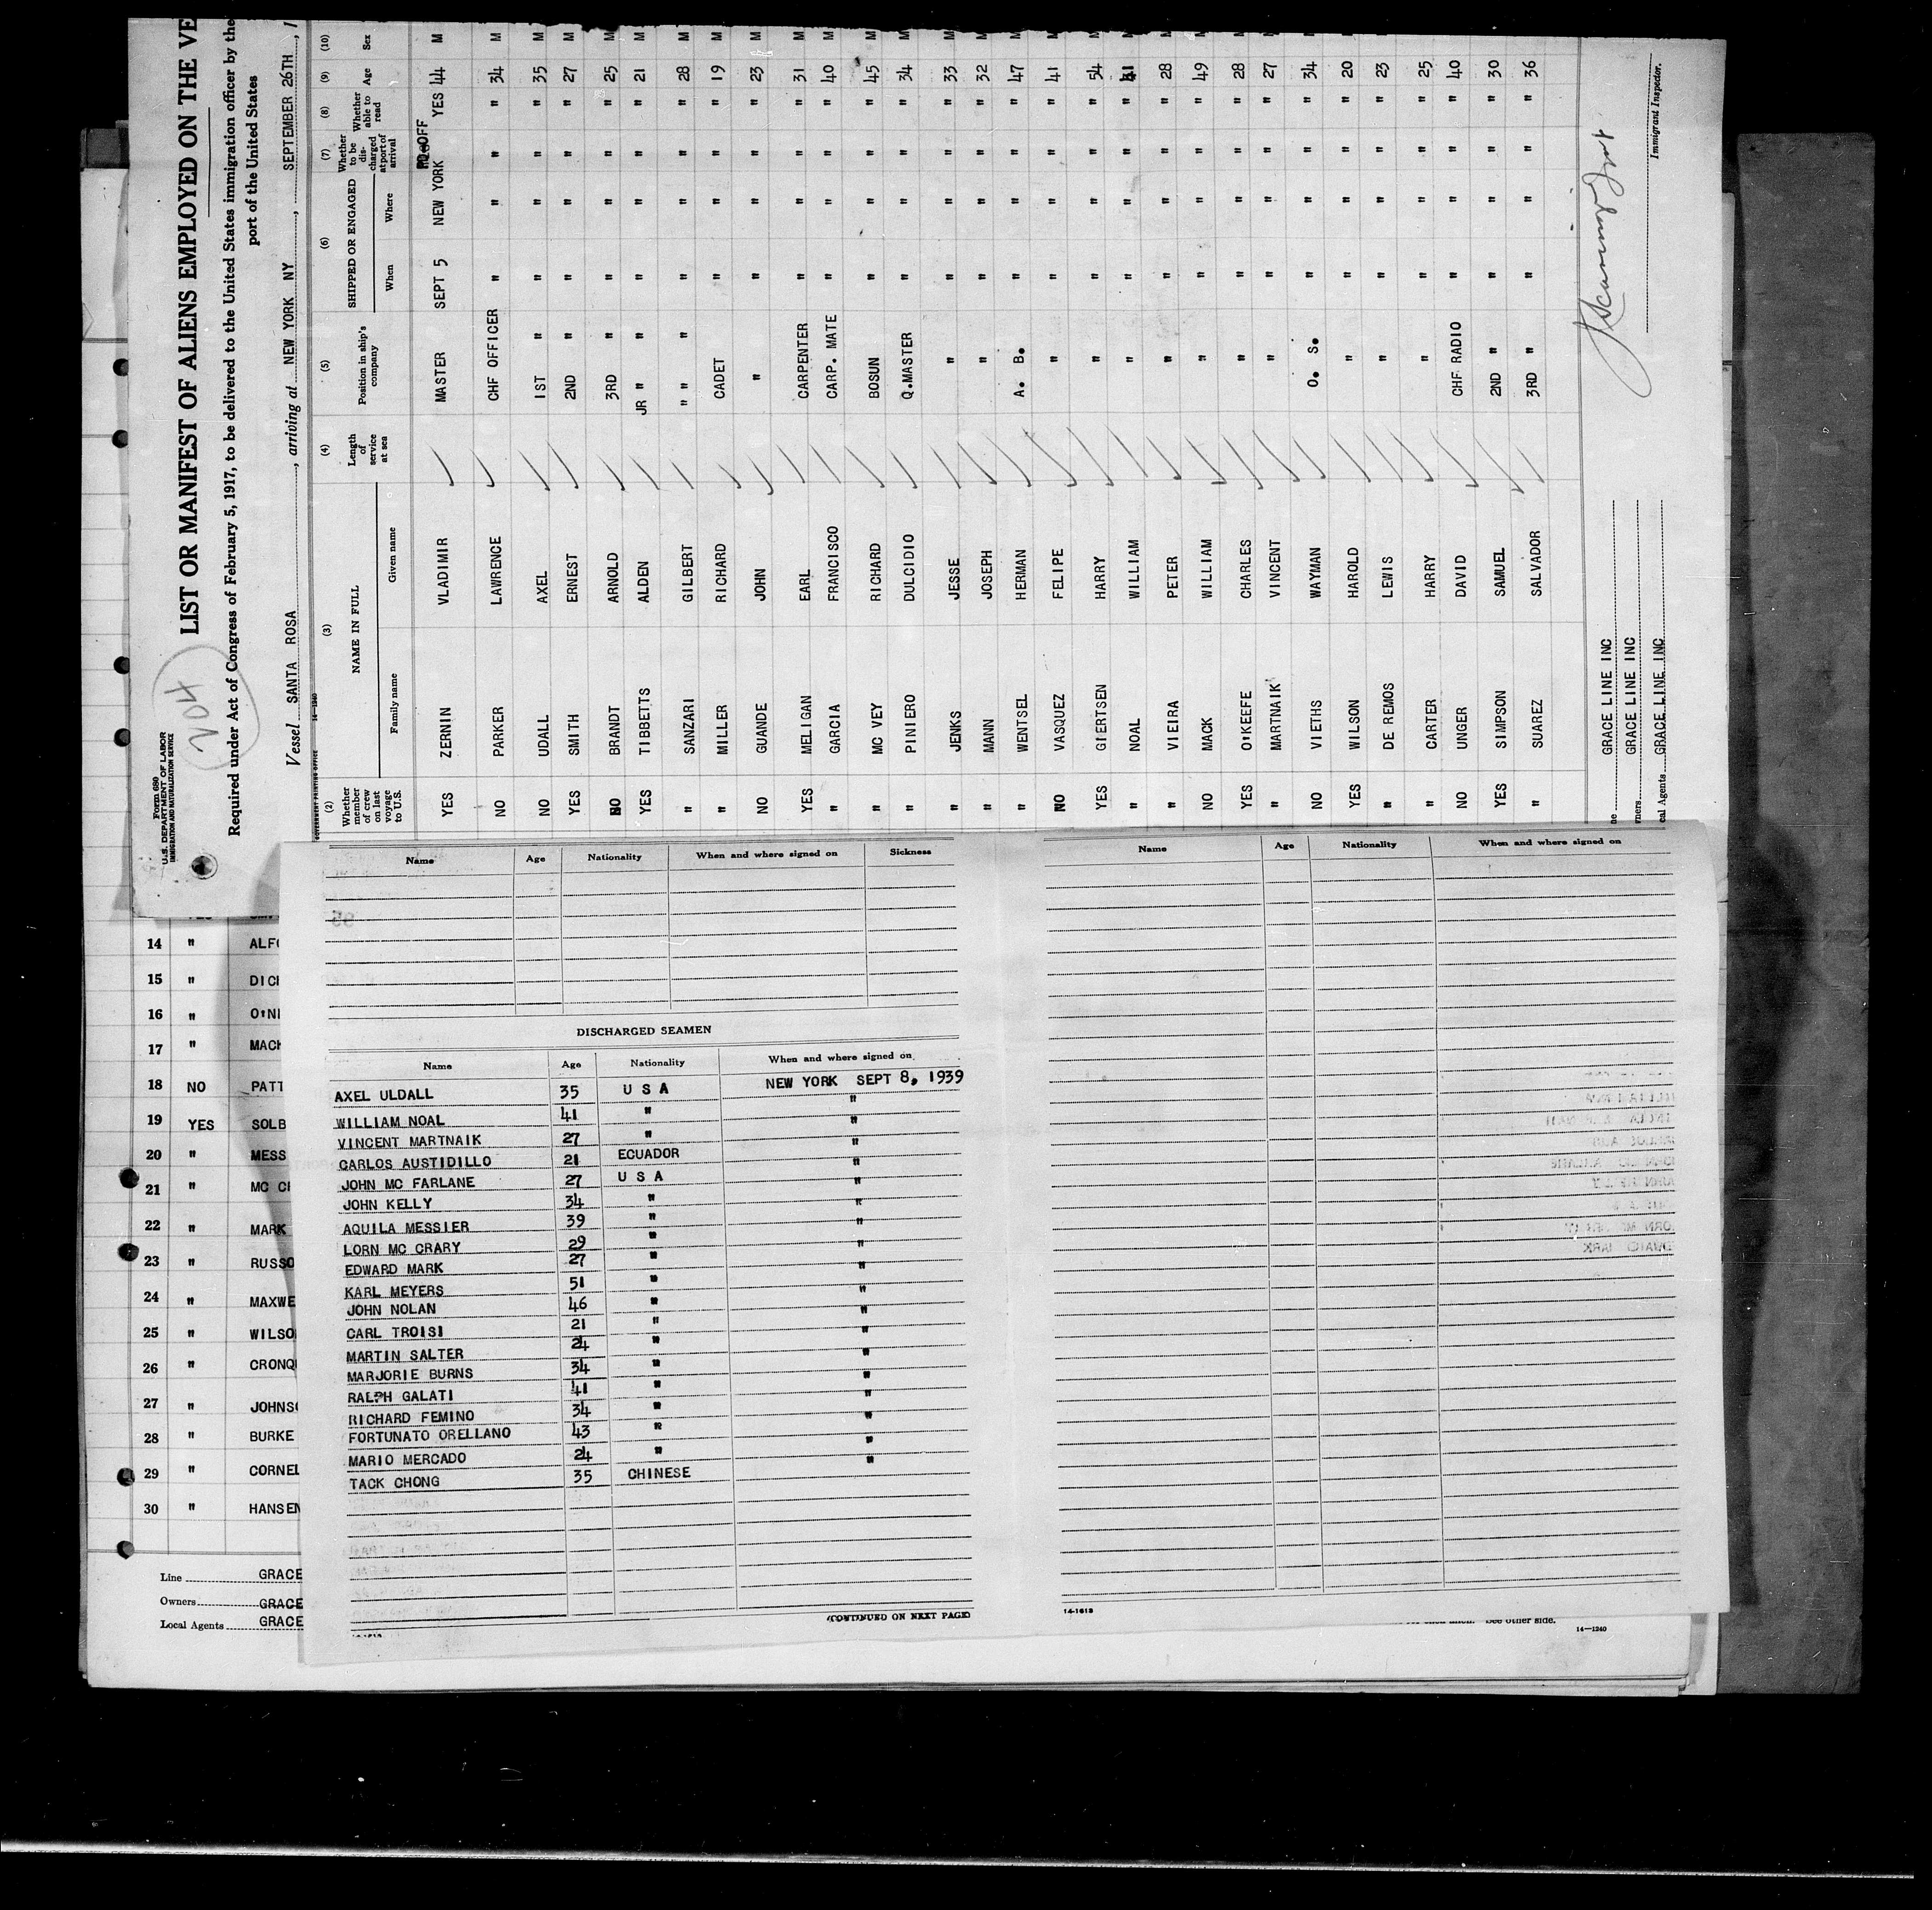 Form 680
U.S. DEPARTMENT OF LABOR
IMMIGRATION AND NATURALIZATION SERVICE
204
LIST OR MANIFEST OF ALIENS EMPLOYED ON THE VE
Required under Act of Congress of February 5, 1917, to be delivered to the United States immigration officer by the
port of the United States
Vessel SANTA ROSA, arriving at NEW YORK NY, SEPTEMBER 26TH, 1
GOVERNMENT PRINTING OFFICE 14—1240
(2) (3) (4) (5) (6) (7) (8) (9) (10)
Whether member of crew on last voyage to U.S. NAME IN FULL Family name Given name Length of service at sea Position in ship's company SHIPPED OR ENGAGED When Where Whether to be discharged at port of arrival Whether able to read Age Sex
YES ZERNIN VLADIMIR MASTER SEPT 5 NEW YORK OFF YES 44 M
NO PARKER LAWRENCE CHF OFFICER " " " " 34 M
NO UDALL AXEL 1ST " " " " " 35 M
YES SMITH ERNEST 2ND " " " " " 27 M
NO BRANDT ARNOLD 3RD " " " " " 25 M
YES TIBBETTS ALDEN JR " " " " " 21 M
" SANZARI GILBERT " " " " " " " 28 M
" MILLER RICHARD CADET " " " " 19 M
NO GUANDE JOHN " " " " " 23 M
YES MELIGAN EARL CARPENTER " " " " 31 M
" GARCIA FRANCISCO CARP. MATE " " " " 40 M
" MC VEY RICHARD BOSUN " " " " 45 M
" PINIERO DULCIDIO Q.MASTER " " " " 34 M
" JENKS JESSE " " " " " 33 M
" MANN JOSEPH " " " " " 32 M
" WENTSEL HERMAN A. B. " " " " 47 M
NO VASQUEZ FELIPE " " " " " 41 M
YES GIERTSEN HARRY " " " " " 54 M
" NOAL WILLIAM " " " " " 41 M
" VIEIRA PETER " " " " " 28 M
NO MACK WILLIAM " " " " " 49 M
YES O'KEEFE CHARLES " " " " " 28 M
" MARTNAIK VINCENT " " " " " 27 M
NO VIETHS WAYMAN O. S. " " " " 34 M
YES WILSON HAROLD " " " " " 20 M
" DE REMOS LEWIS " " " " " 23 M
" CARTER HARRY " " " " " 25 M
NO UNGER DAVID CHF RADIO " " " " 40 M
YES SIMPSON SAMUEL 2ND " " " " " 30 M
" SUAREZ SALVADOR 3RD " " " " " 36 M
ne GRACE LINE INC
wners GRACE LINE INC
cal Agents GRACE LINE INC
Immigrant Inspector.
14 " ALFO
15 " DICK
16 " O'NE
17 " MACK
18 NO PATT
19 YES SOLB
20 " MESS
21 " MC C
22 " MARK
23 " RUSSO
24 " MAXWE
25 " WILSO
26 " CRONQ
27 " JOHNSO
28 " BURKE
29 " CORNEL
30 " HANSEN
Line GRACE
Owners GRACE
Local Agents GRACE
Name Age Nationality When and where signed on Sickness
DISCHARGED SEAMEN
Name Age Nationality When and where signed on
AXEL ULDALL 35 U S A NEW YORK SEPT 8, 1939
WILLIAM NOAL 41 " "
VINCENT MARTNAIK 27 " "
CARLOS AUSTIDILLO 21 ECUADOR "
JOHN MC FARLANE 27 U S A "
JOHN KELLY 34 " "
AQUILA MESSIER 39 " "
LORN MC CRARY 29 " "
EDWARD MARK 27 " "
KARL MEYERS 51 " "
JOHN NOLAN 46 " "
CARL TROISI 21 " "
MARTIN SALTER 24 " "
MARJORIE BURNS 34 " "
RALPH GALATI 41 " "
RICHARD FEMINO 34 " "
FORTUNATO ORELLANO 43 " "
MARIO MERCADO 24 " "
TACK CHONG 35 CHINESE "
(CONTINUED ON NEXT PAGE)
Name Age Nationality When and where signed on
14-1613
See other side.
14—1240